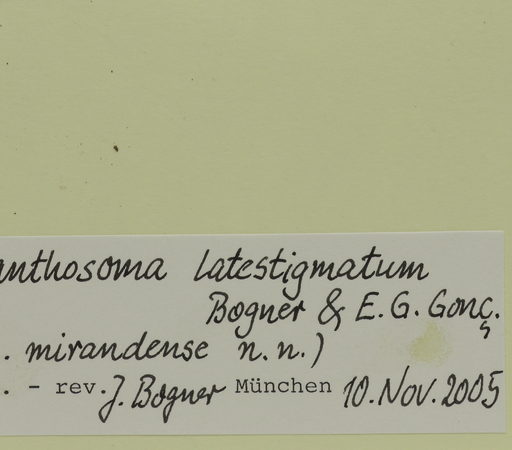 anthosoma latestigmatum
Bogner & E.G. Gonç.
. mirandense n.n.)
. - rev. J. Bogner München 10.Nov.2005